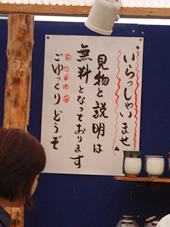 いらっしゃいませ
見物と説明は
無料となっております
ごゆっくりどうぞ